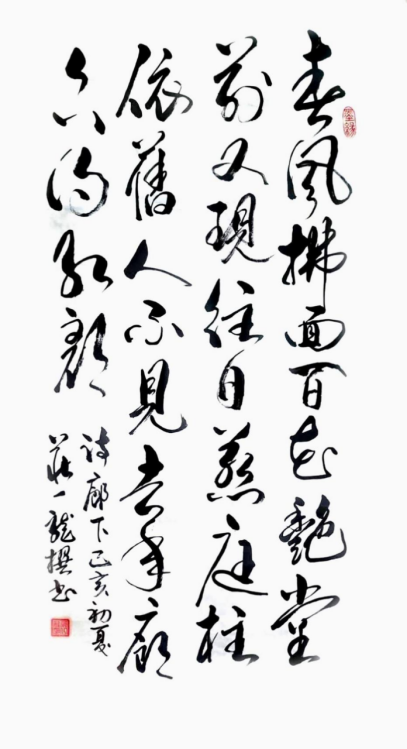 春風拂面百花艷堂
前又現往日燕庭柱
依舊人不見去年廊
紅顏
詩廊下己亥初夏
莊一龍撰書